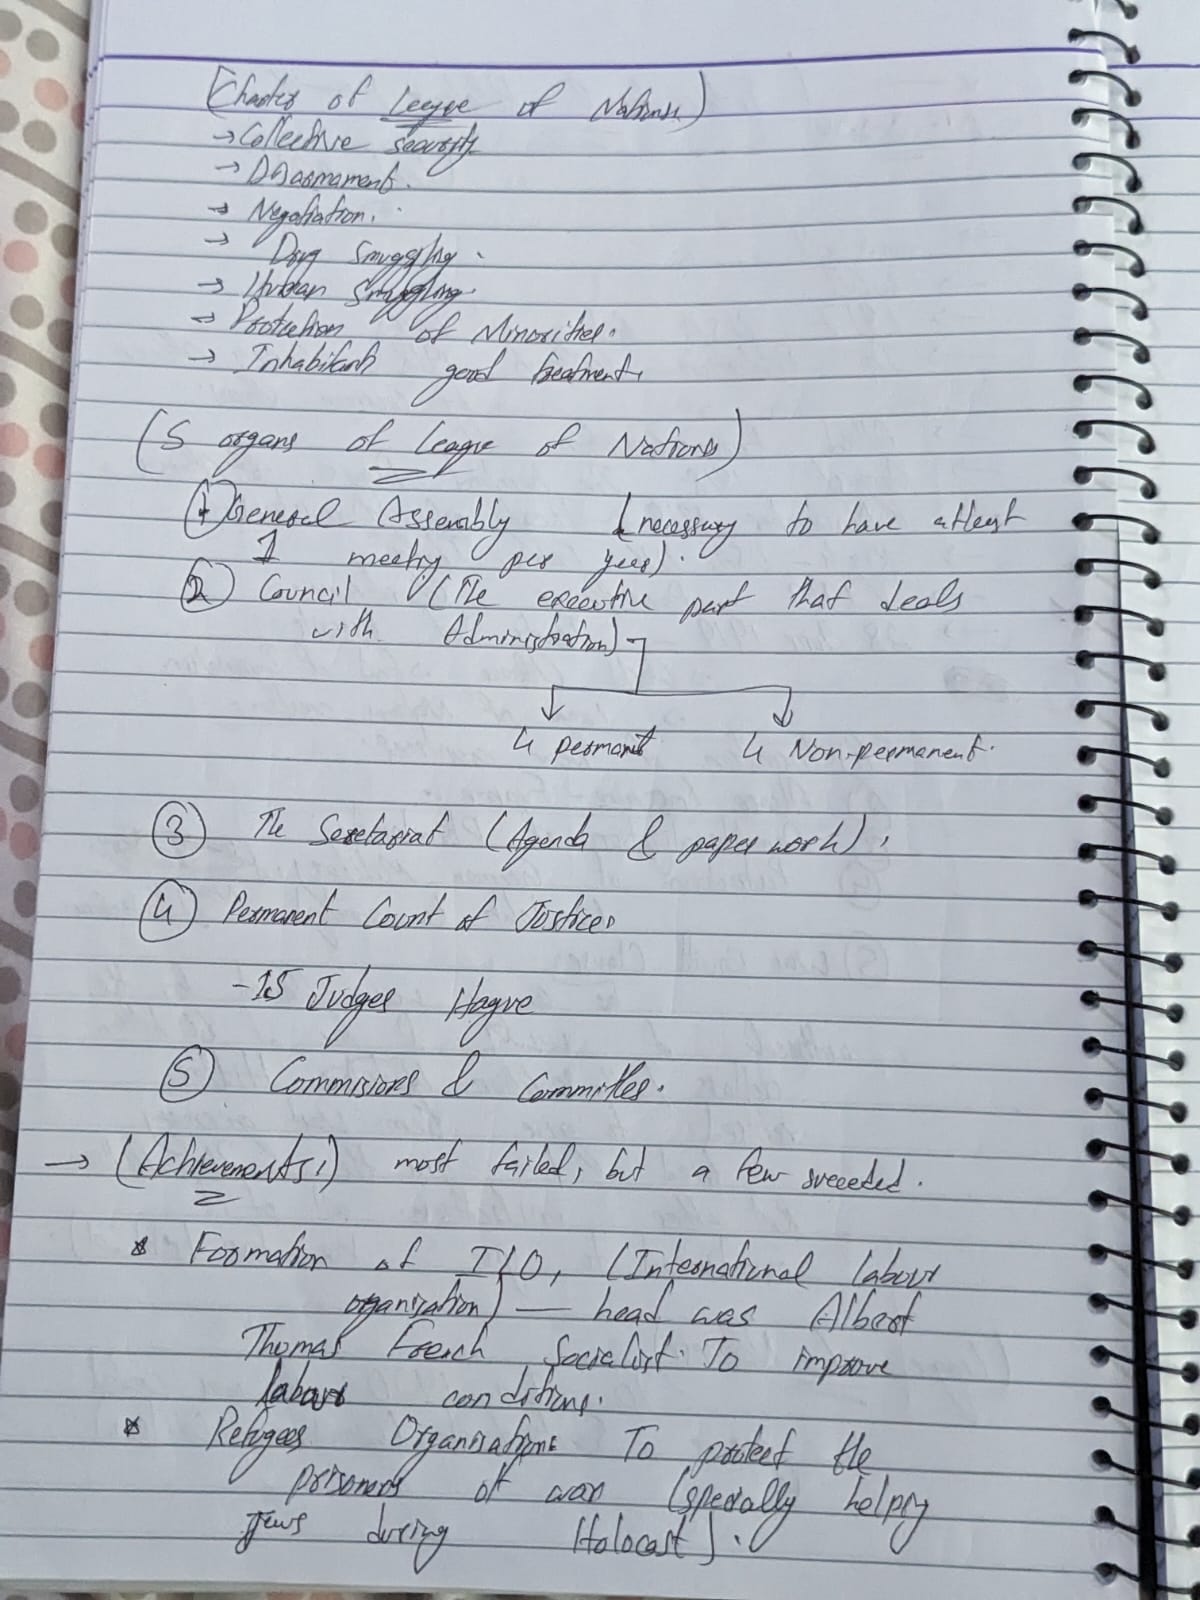 (Charter of League of Nations)
→ Collective security
→ Disarmament.
→ Negotiation.
→ Drug smuggling.
→ Human Smuggling.
→ Protection of Minorities.
→ Inhabitants good treatment.
(5 organs of League of Nations)
1 General Assembly (necessary to have atleast
1 meeting per year).
2 Council (The executive part that deals
with Administration)
4 permanent 4 Non-permanent.
3 The Secretariat (Agenda & paper work).
4 Permanent Court of Justice.
-15 Judges Hague
5 Commisions & Committes.
→ (Achievements:) most failed, but a few suceeded.
* Formation of ILO, (International labour
organization) — head was Albert
Thomas French Socialist. To improve
labour conditions.
* Refugees Organisations To protect the
prisoners of war (specially helping
Jews during Holocast).